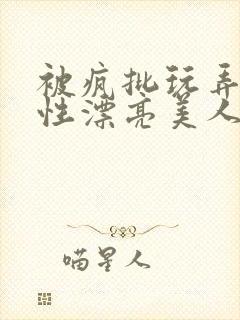 被疯批玩弄
性漂亮美人
喵星人